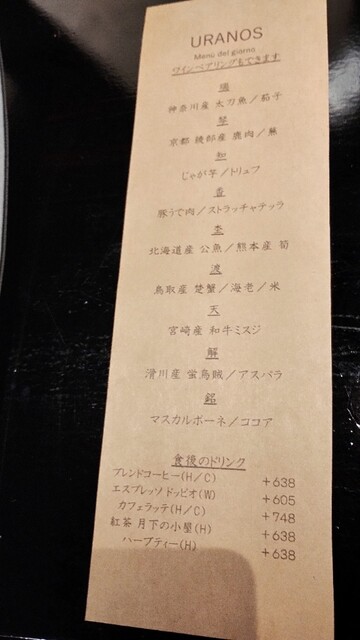 URANOS
Menu del giorno
ワインペアリングもできます
適
神奈川産 太刀魚／茄子
琴
京都 綾部産 鹿肉／蕪
和
じゃが芋／トリュフ
香
豚うで肉／ストラッチャテッラ
杢
北海道産 公魚／熊本産 筍
渡
鳥取産 楚蟹／海老／米
天
宮崎産 和牛ミスジ
解
滑川産 蛍烏賊／アスパラ
銘
マスカルポーネ／ココア
食後のドリンク
ブレンドコーヒー(H／C) +638
エスプレッソ ドッピオ(W) +605
カフェラッテ(H／C) +748
紅茶 月下の小屋(H) +638
ハーブティー(H) +638